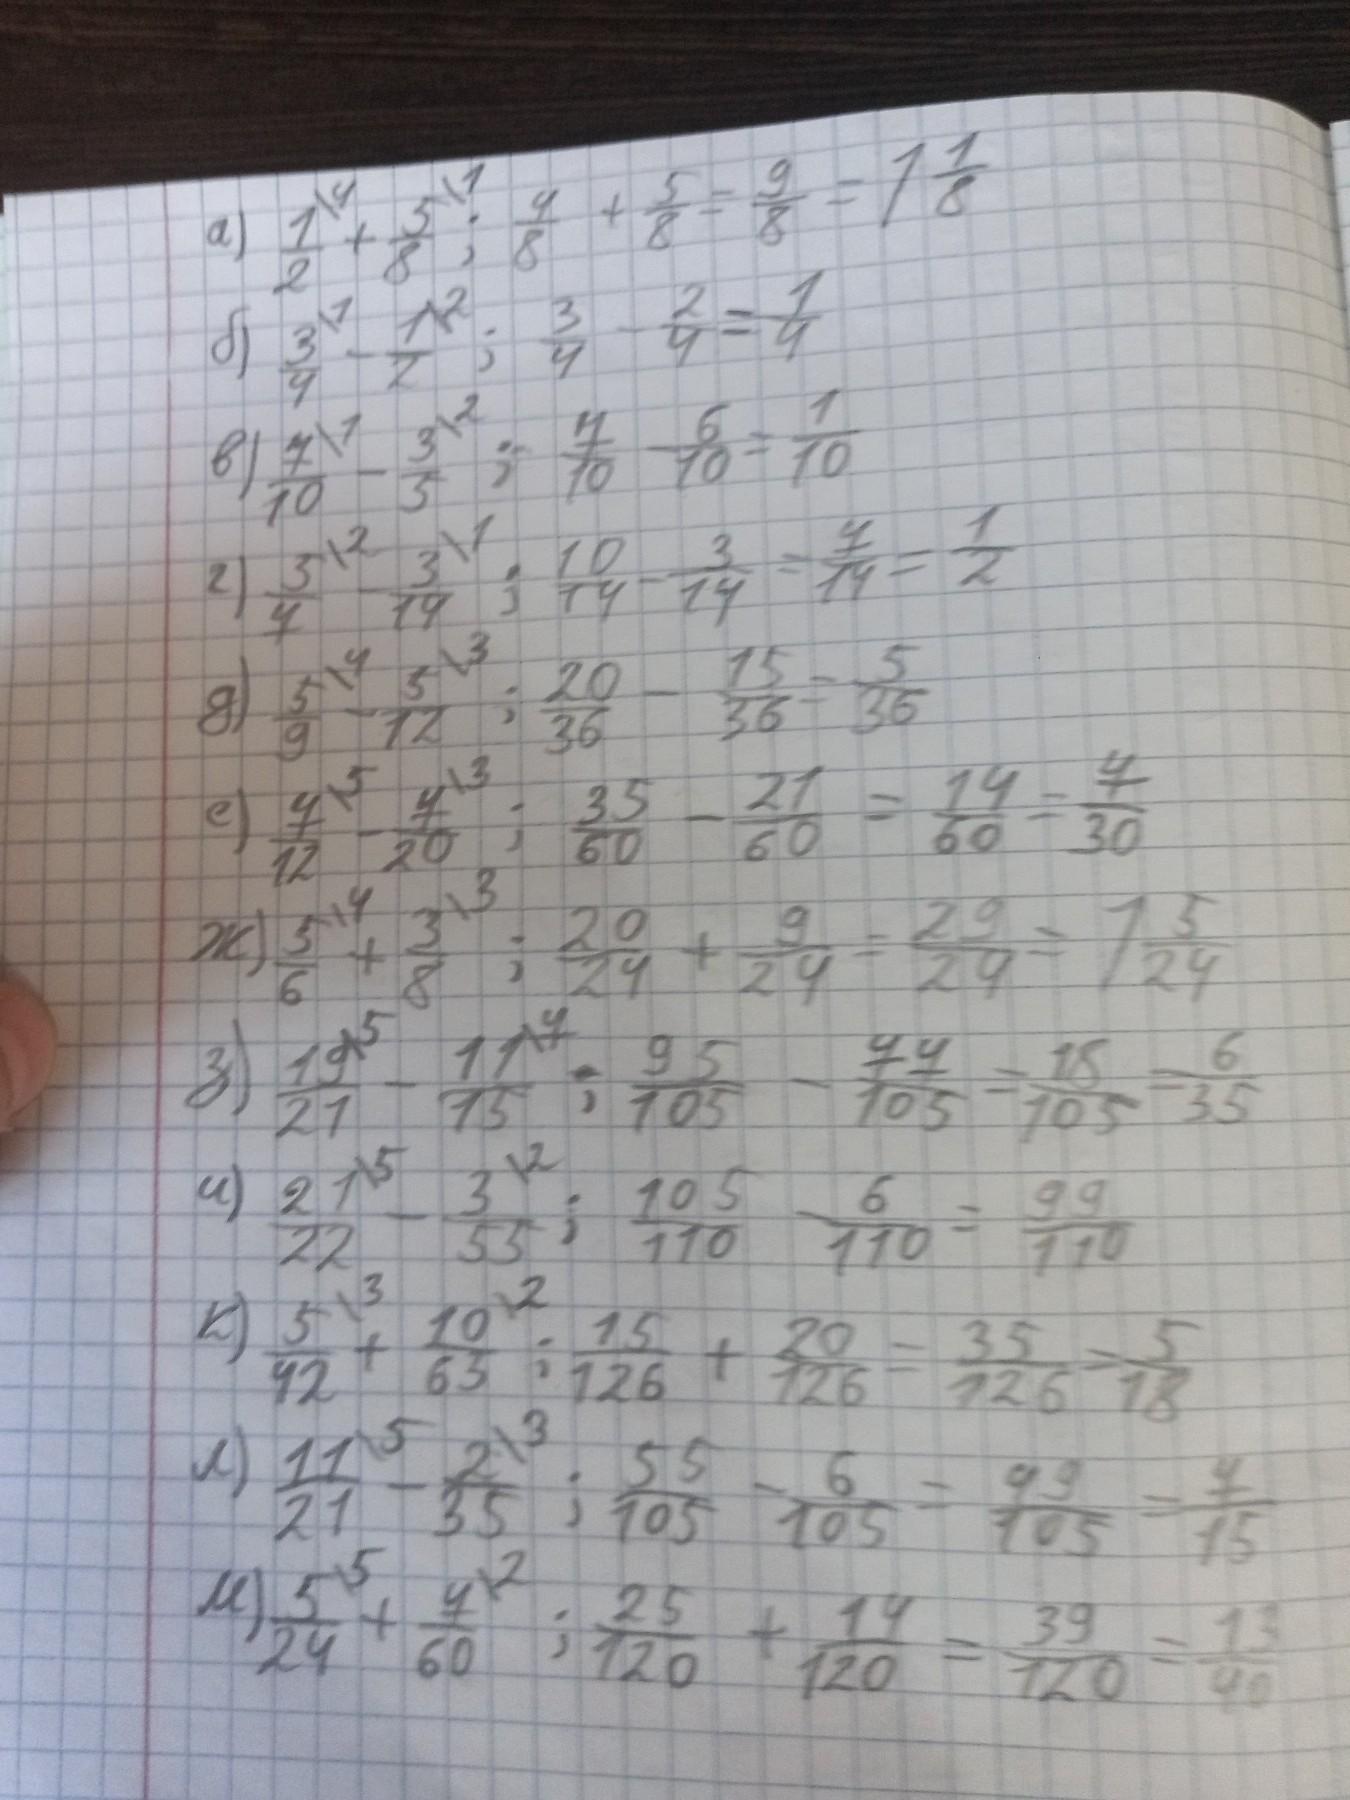 а) 1/2\4 + 5/8\1 ; 4/8 + 5/8 = 9/8 = 1 1/8
б) 3/4\1 - 1/2\2 ; 3/4 - 2/4 = 1/4
в) 7/10\1 - 3/5\2 ; 7/10 - 6/10 = 1/10
г) 5/7\2 - 3/14\1 ; 10/14 - 3/14 = 7/14 = 1/2
д) 5/9\4 - 5/12\3 ; 20/36 - 15/36 = 5/36
е) 7/12\5 - 7/20\3 ; 35/60 - 21/60 = 14/60 = 7/30
ж) 5/6\4 + 3/8\3 ; 20/24 + 9/24 = 29/24 = 1 5/24
з) 19/21\5 - 11/15\7 ; 95/105 - 77/105 = 18/105 = 6/35
и) 21/22\5 - 3/55\2 ; 105/110 - 6/110 = 99/110
к) 5/42\3 + 10/63\2 ; 15/126 + 20/126 = 35/126 = 5/18
л) 11/21\5 - 2/35\3 ; 55/105 - 6/105 = 49/105 = 7/15
м) 5/24\5 + 7/60\2 ; 25/120 + 14/120 = 39/120 = 13/40